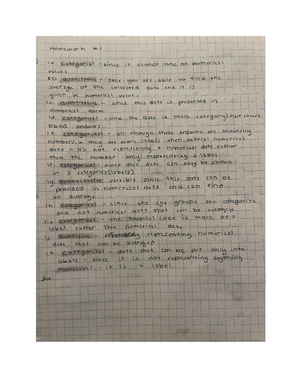 Homework #1:
1a categorical - since it cannot take on numerical
values
1b. quantitative - since you are able to find the
average of the collected data and it is
given in numerical values
1c. quantitative - since this data is presented in
numerical form
1d categorical - since the data is more category/
based answers
1e. categorical - although these answers are technically
numbers, they are more labels then actual numerical
data - it's not representing a numerical data rather
then the number only representing a label
1f. categorical - since this data can easily be shown
in 3 categories (labels)
1g quantitative variable since this data can be
provided in numerical data and can find
an average
categorical - since the age groups are categories
and not numerical data that can be averaged
categorical - the postal code is more of a
label rather than numerical data
representing numerical
data that can be averaged
categorical - data that can be put only into
labels - since it is not representing anything
numerical - it is a label